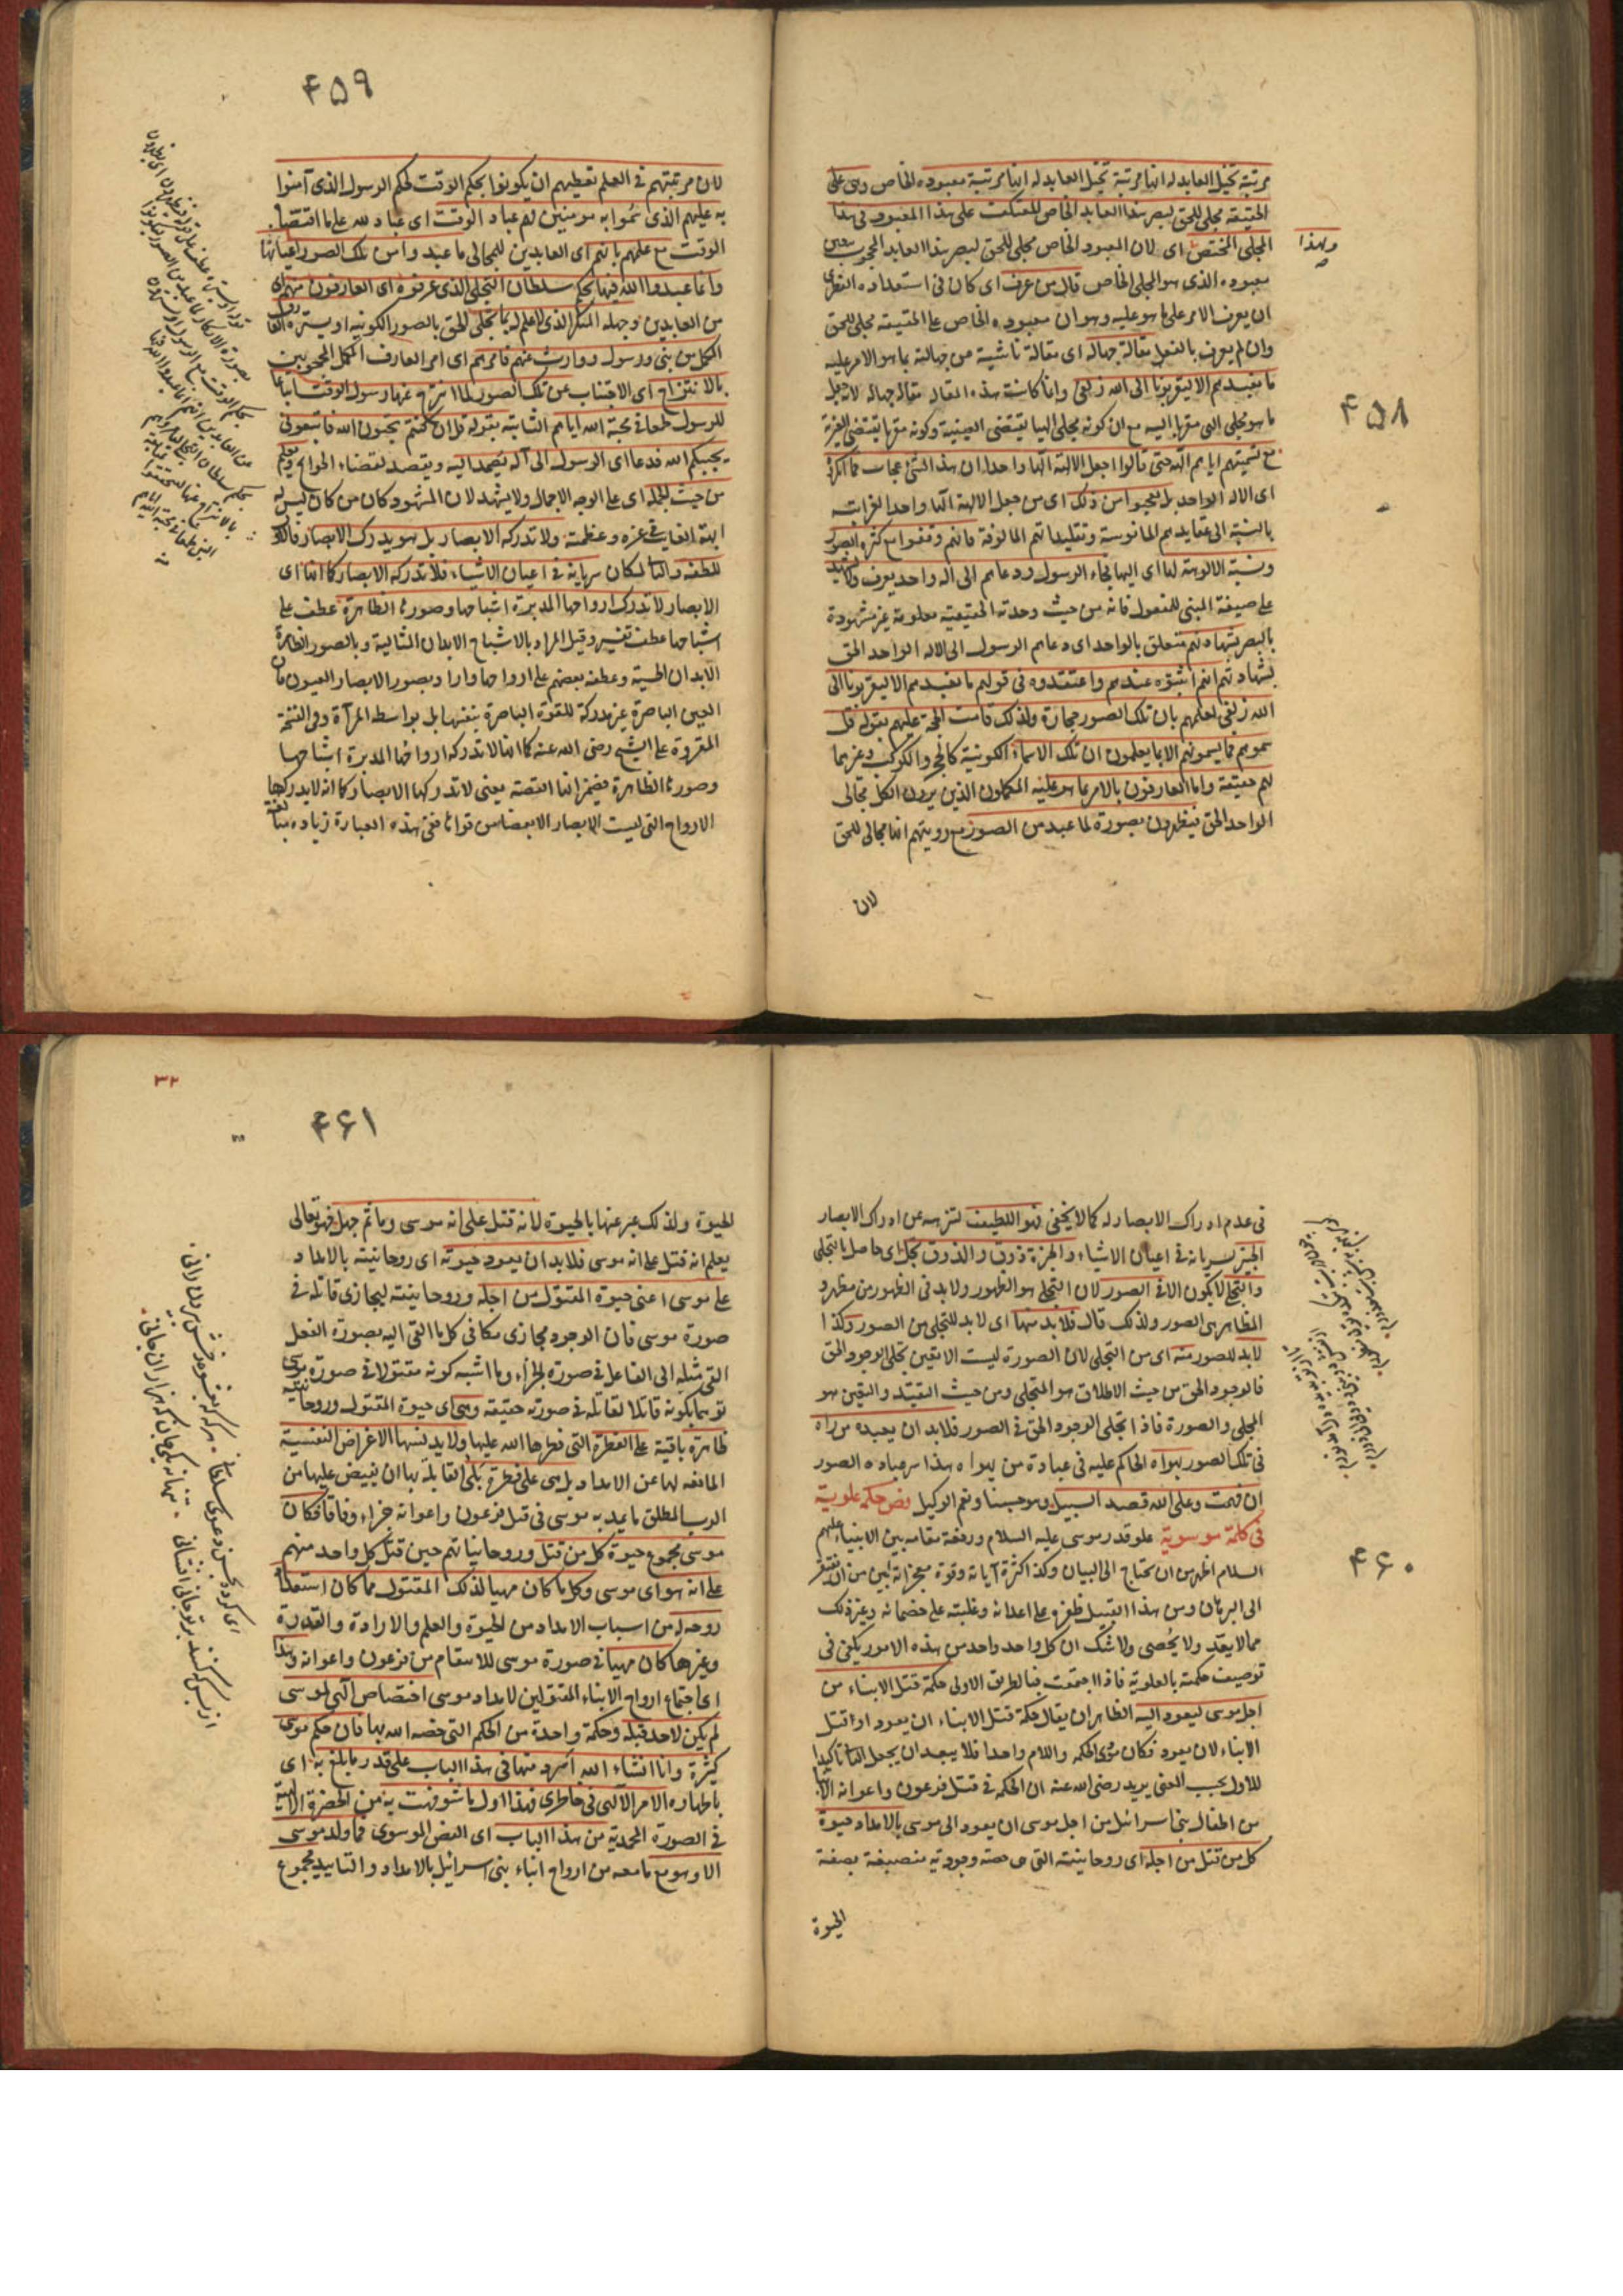 ۴۵۸
مرتبة تخيل العابد له انها مرتبة تخيل العابد له انها مرتبة معبوده الخاص وهى على
الحقيقة مجلى للحق لبصر هذا العابد الخاص المعتكف على هذا المعبود فى هذا
المجلى المختص اى لان المعبود الخاص مجلى للحق لبصر هذا العابد المحجوب بتعين
معبوده الذى هو المجلى الخاص قال من عرف اى كان فى استعداده الفطرى
ان يعرف الامر على ما هو عليه وهو ان معبوده الخاص على الحقيقة مجلى للحق
وان لم يعرف بالفعل مقالة جهالة اى مقالة ناشية من جهالته بما هو الامر عليه
ما نعبدهم الا ليقربونا الى الله زلفى وانما كانت هذه المقالة مقالة جهالة لانه جعل
ما هو مجلى الهى مقربا اليه مع ان كونه مجلى الهيا يقتضى العينية وكونه مقربا يقتضى الغيرية
مع تسميتهم اياهم آلهة حتى قالوا اجعل الالهة الها واحدا ان هذا لشئ عجاب فما انكروا
اى الاله الواحد بل تعجبوا من ذلك اى من جعل الالهة الها واحدا لغرابته
بالنسبة الى عقايدهم المانوسة وتقليداتهم المالوفة فانهم وقفوا مع كثرة الصور
ونسبة الالوهة لها اى اليها فجاء الرسول ودعاهم الى اله واحد يعرف ولا يشهد
على صيغة المبنى للمفعول فانه من حيث وحدته الحقيقية معلومة غير مشهودة
بالبصر بشهادتهم متعلق بالواحد اى دعاهم الرسول الى الاله الواحد الحق
بشهادتهم انهم اثبتوه عندهم واعتقدوه فى قولهم ما نعبدهم الا ليقربونا الى
الله زلفى لعلمهم بان تلك الصور حجارة ولذلك قامت الحجة عليهم بقوله قل
سموهم فما يسمونهم الا بما يعلمون ان تلك الاسماء الكونية كالحجر والكوكب وغيرهما
لهم حقيقة واما العارفون بالامر بما هو عليه المكملون الذين يرون الكل مجالى
الواحد الحق فيظهرون بصورة لما عبد من الصور مع رويتهم انها مجالى للحق
لان
ولهذا
۴۵۹
لان مرتبتهم فى العلم تعطيهم ان يكونوا بحكم الوقت لحكم الرسول الذى آمنوا
به عليهم الذى سموا به مومنين فهم عباد الوقت اى عباد لله على ما اقتضاه
الوقت مع علمهم بانهم اى العابدين للمجالى ما عبدوا من تلك الصور اعيانها
وانما عبدوا الله فيها بحكم سلطان التجلى الذى عرفوه اى العارفون منهم اى
من العابدين وجهله المنكر الذى لا علم له بما تجلى للحق بالصور الكونيه او يستره العارف
المكمل من نبى ورسول ووارث عنهم فامرهم اى امر العارف المكمل المحجوبين
بالانتزاح اى الاجتناب عن تلك الصور لما انتزح عنها رسول الوقت اتباعا
للرسول طمعا فى محبة الله اياهم الثابتة بقوله قل ان كنتم تحبون الله فاتبعونى
يحببكم الله فدعا اى الرسول الى اله يصمد اليه ويقصد لقضاء الحوائج ويعلم
من حيث الجملة اى على الوجه الاجمالى ولا يشهد لان المشهود كان من كان ليس له
ولا تدركه الابصار بل هو يدرك الابصار وذلك
للطفه وسريانه فى اعيان الاشياء فلا تدركه الابصار كما انها اى
الابصار لا تدرك ارواحها المدبرة اشباحها وصورها الظاهرة عطف على
اشباحها عطف تفسير وقيل المراد بالاشباح الابدان المثالية وبالصور الظاهرة
الابدان الحسية وعطفه بعضهم على ارواحها واراد بصور الابصار العيون فان
العين الباصرة غير مدركة للقوة الباصرة بنفسها بل بواسطة المرآة وفى النسخة
المقروة على الشيخ رضى الله عنه كما انها لا تدركه ارواحها المدبرة اشباحها
وصورها الظاهرة فضمير انها القصة يعنى لا تدركها الابصار كما انه لا يدركها
الارواح التى ليست الابصار الا بعضا من قواها ففى هذه العبارة زيادة مبالغة
۴۶۰
فى عدم ادراك الابصار له كما لا يخفى فهو اللطيف لتنزهه عن ادراك الابصار
الخبير بسريانه فى اعيان الاشياء والخبرة ذوق والذوق تجل اى حاصل بالتجلى
والتجلى لا يكون الا فى الصور لان التجلى هو الظهور ولا بد فى الظهور من مظهر و
المظاهر هى الصور ولذلك قال فلا بد منها اى لا بد للتجلى من الصور وكذا
لا بد للصور منه اى من التجلى لان الصورة ليست الا تعين تجلى الوجود الحق
فالوجود الحق من حيث الاطلاق هو المتجلى ومن حيث التقيد والتعين هو
المجلى والصورة فاذا تجلى الوجود الحق فى الصور فلا بد ان يعبده من راه
فى تلك الصور بهواه الحاكم عليه فى عبادة من يهواه هذا سر عبادة الصور
ان فهمت وعلى الله قصد السبيل وهو حسبنا ونعم الوكيل فص حكمة علوية
فى كلمة موسوية علو قدر موسى عليه السلام ورفعة مقامه بين الانبياء عليهم
السلام اظهر من ان يحتاج الى البيان وكذا كثرة آياته وقوة معجزاته ابين من ان يفتقر
الى البرهان ومن هذا القبيل ظفره على اعدائه وغلبته على خصمائه وغير ذلك
مما لا يعد ولا يحصى ولا شك ان كل واحد واحد من هذه الامور يكفى فى
توصيف حكمته بالعلوية فاذا اجتمعت فبالطريق الاولى حكمة قتل الابناء من
اجل موسى ليعود اليه الظاهر ان يقال حكمة قتل الابناء ان يعود او قتل
الابناء لان يعود فكان مؤدى الحكمة واللام واحدا فلا يبعد ان يجعل الثانى تاكيدا
للاول بحسب المعنى يريد رضى الله عنه ان الحكمة فى قتل فرعون واعوانه الابناء
من اطفال بنى اسرائيل من اجل موسى ان يعود الى موسى بالامداد حيوة
كل من قتل من اجله اى روحانيته التى هى حصة وجودية منصبغة بصفة
الحيوة
۳۲
۴۶۱
الحيوة ولذلك عبر عنها بالحيوة لانه قتل على انه موسى وما ثم جهل فهو تعالى
يعلم انه قتل على انه موسى فلا بد ان يعود حيوته اى روحانيته بالامداد
على موسى اعنى حيوة المقتول من اجله وروحانيته ليجازى قاتله فى
صورة موسى فان الوجود مجازى مكافى كل ما القى اليه بصورة الفعل
القى مثله الى الفاعل فى صورة الجزاء وما اشبه كونه مقتولا فى صورة موسى
توهما بكونه قاتلا لقاتله فى صورته حقيقة وهى اى حيوة المقتول وروحانيته
ظاهرة باقية على الفطرة التى فطرها الله عليها ولا يدنسها الاغراض النفسية
المانعه لها عن الامداد بل هى على فطرة بلى القابلة بها ان يفيض عليها من
الرب المطلق ما يمد به موسى فى قتل فرعون واعوانه جزاء وفاقا فكان
موسى مجموع حيوة كل من قتل وروحانياتهم حين قتل كل واحد منهم
على انه هو اى موسى وكل ما كان مهيا لذلك المقتول مما كان استعداد
روحه له من اسباب الامداد من الحيوة والعلم والارادة والقدرة
وغيرها كان مهيا فى صورة موسى للانتقام من فرعون واعوانه وهذا
اى اجتماع ارواح الابناء المقتولين لامداد موسى اختصاص آلهى لموسى
لم يكن لاحد قبله وحكمة واحدة من الحكم التى خصه الله بها فان حكم موسى
كثيرة وانا انشاء الله اسرد منها فى هذا الباب على قدر ما بلغ به اى
باظهاره الامر الآلهى فى خاطرى فهذا اول ما شوفهت به من الحضرة الالهية
فى الصورة المحمدية من هذا الباب اى الفص الموسوى فما ولد موسى
الا وهو مع ما معه من ارواح ابناء بنى اسرائيل بالامداد والتاييد مجموع